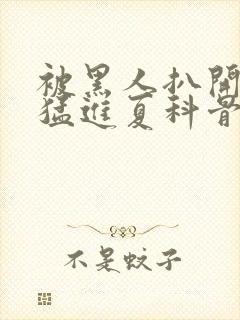 被黑人扒開
猛進夏科骨
不是蚊子